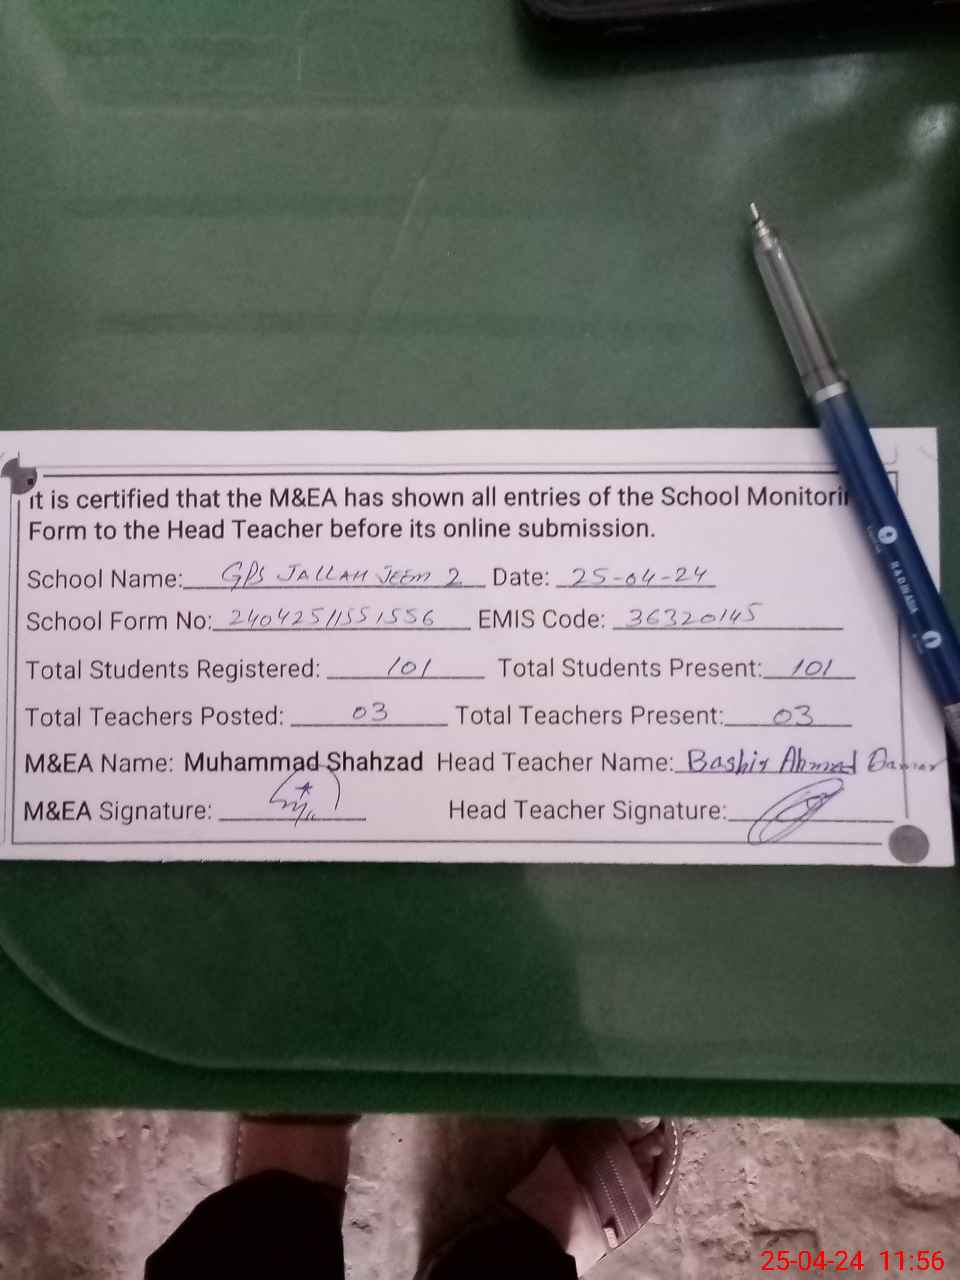 It is certified that the M&EA has shown all entries of the School Monitorin
Form to the Head Teacher before its online submission.
School Name: GPS JALLAH JEEM 2 Date: 25-04-24
School Form No: 24042511551556 EMIS Code: 36320145
Total Students Registered: 101 Total Students Present: 101
Total Teachers Posted: 03 Total Teachers Present: 03
M&EA Name: Muhammad Shahzad Head Teacher Name: Bashir Ahmad
M&EA Signature: Head Teacher Signature:
25-04-24 11:56